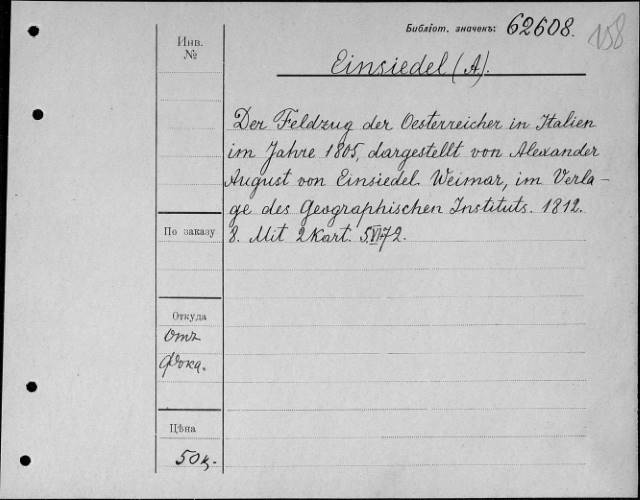 Библіот. значекъ: 62608.
158
Инв.
№
Einsiedel (A).
Der Feldzug der Oesterreicher in Italien
im Jahre 1805, dargestellt von Alexander
August von Einsiedel. Weimar, im Verla-
ge des Geographischen Instituts. 1812.
8. Mit 2 Kart.
По заказу
Откуда
отъ
Фока.
Цѣна
50 к.